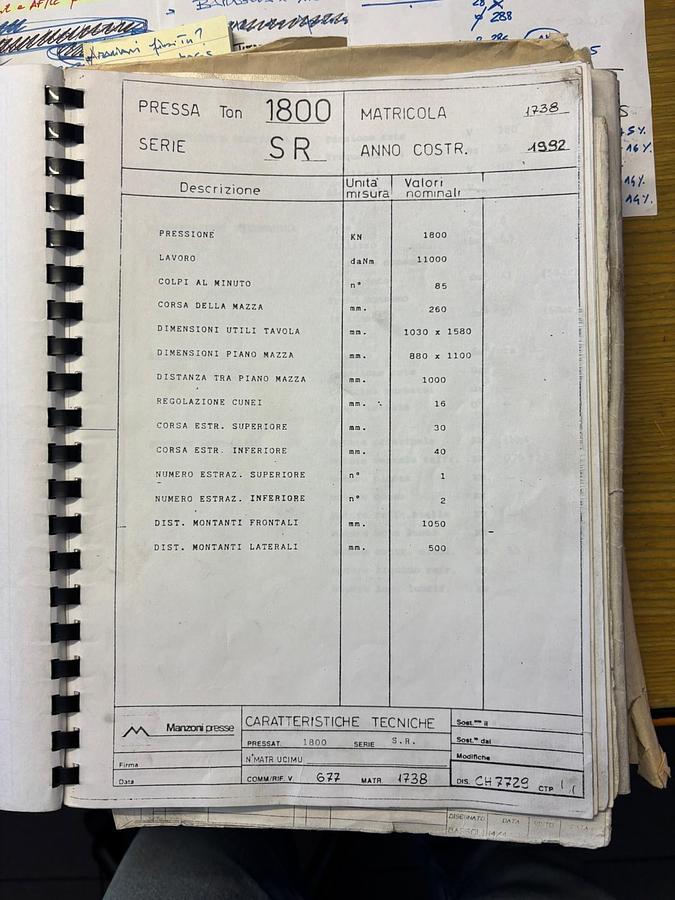 PRESSA Ton 1800 MATRICOLA 1738
SERIE SR ANNO COSTR. 1992
Descrizione Unita' misura Valori nominali
PRESSIONE KN 1800
LAVORO daNm 11000
COLPI AL MINUTO n° 85
CORSA DELLA MAZZA mm. 260
DIMENSIONI UTILI TAVOLA mm. 1030 x 1580
DIMENSIONI PIANO MAZZA mm. 880 x 1100
DISTANZA TRA PIANO MAZZA mm. 1000
REGOLAZIONE CUNEI mm. 16
CORSA ESTR. SUPERIORE mm. 30
CORSA ESTR. INFERIORE mm. 40
NUMERO ESTRAZ. SUPERIORE n° 1
NUMERO ESTRAZ. INFERIORE n° 2
DIST. MONTANTI FRONTALI mm. 1050
DIST. MONTANTI LATERALI mm. 500
Manzoni presse
CARATTERISTICHE TECNICHE
PRESSA T. 1800 SERIE S.R.
N° MATR UCIMU
COMM/RIF. V 677 MATR. 1738
Firma
Data
Sost. il
Sost. dal
Modifiche
DIS. CH7729 CTP.
DISEGNATO DATA
288